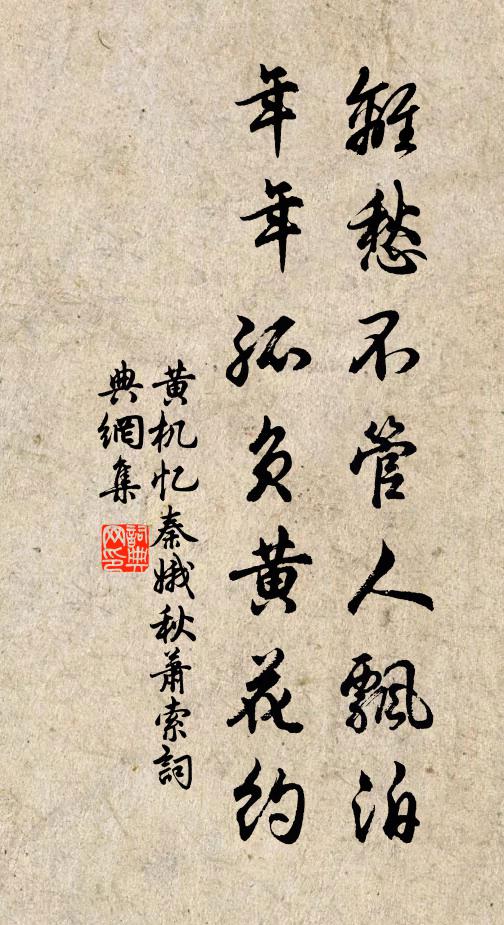 離愁不管人飄泊
年年孤负黄花約
黄机忆秦娥秋萧索詞
典網集
詞典网印